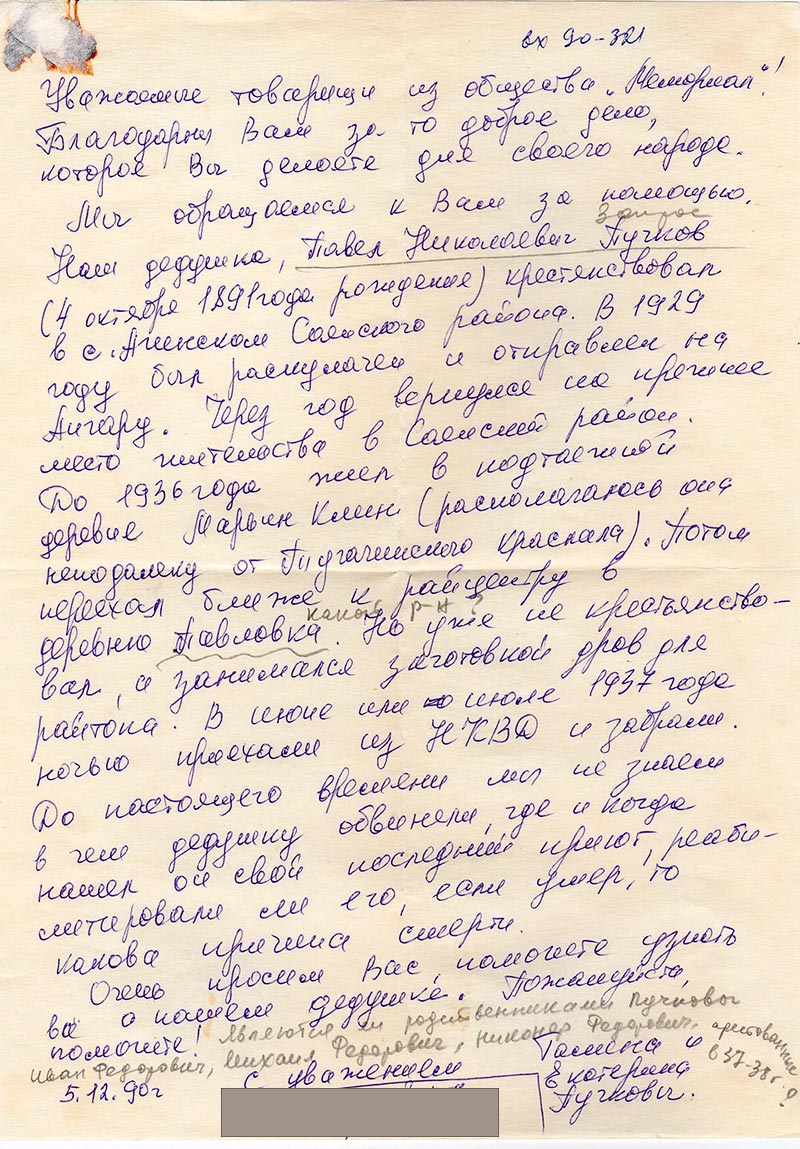 вх 90-321
Уважаемые товарищи из общества „Мемориал“!
Благодарны Вам за то доброе дело,
которое Вы делаете для своего народа.
Мы обращаемся к Вам за помощью.
Запрос
Наш дедушка, Павел Николаевич Пучков
(4 октября 1891 года рождения) крестянствовал
в с. Агинском Саянского района. В 1929
году был раскулачен и отправлен на
Ангару. Через год вернулся на прежнее
место жительства в Саянский район.
До 1936 года жил в подтаежной
деревне Марьин Клин (располагалось она
неподалеку от Тугачинского краслага). Потом
переехал ближе к райцентру в
какой р-н?
деревню Павловка. Но уже не крестьянство-
вал, а занимался заготовкой дров для
райтопа. В июне или июле 1937 года
ночью приехали из НКВД и забрали.
До настоящего времени мы не знаем
в чем дедушку обвиняли, где и когда
нашел он свой последний приют, реаби-
литировали ли его, если умер, то
какова причина смерти.
Очень просим Вас, помогите узнать
всё о нашем дедушке. Пожалуйста,
помогите!
Являются ли родственниками Пучковы
Иван Федорович, Михаил Федорович, Никонор Федорович, арестованные
в 37-38г.?
С уважением
Галина и
Екатерина
Пучковы.
5.12.90г